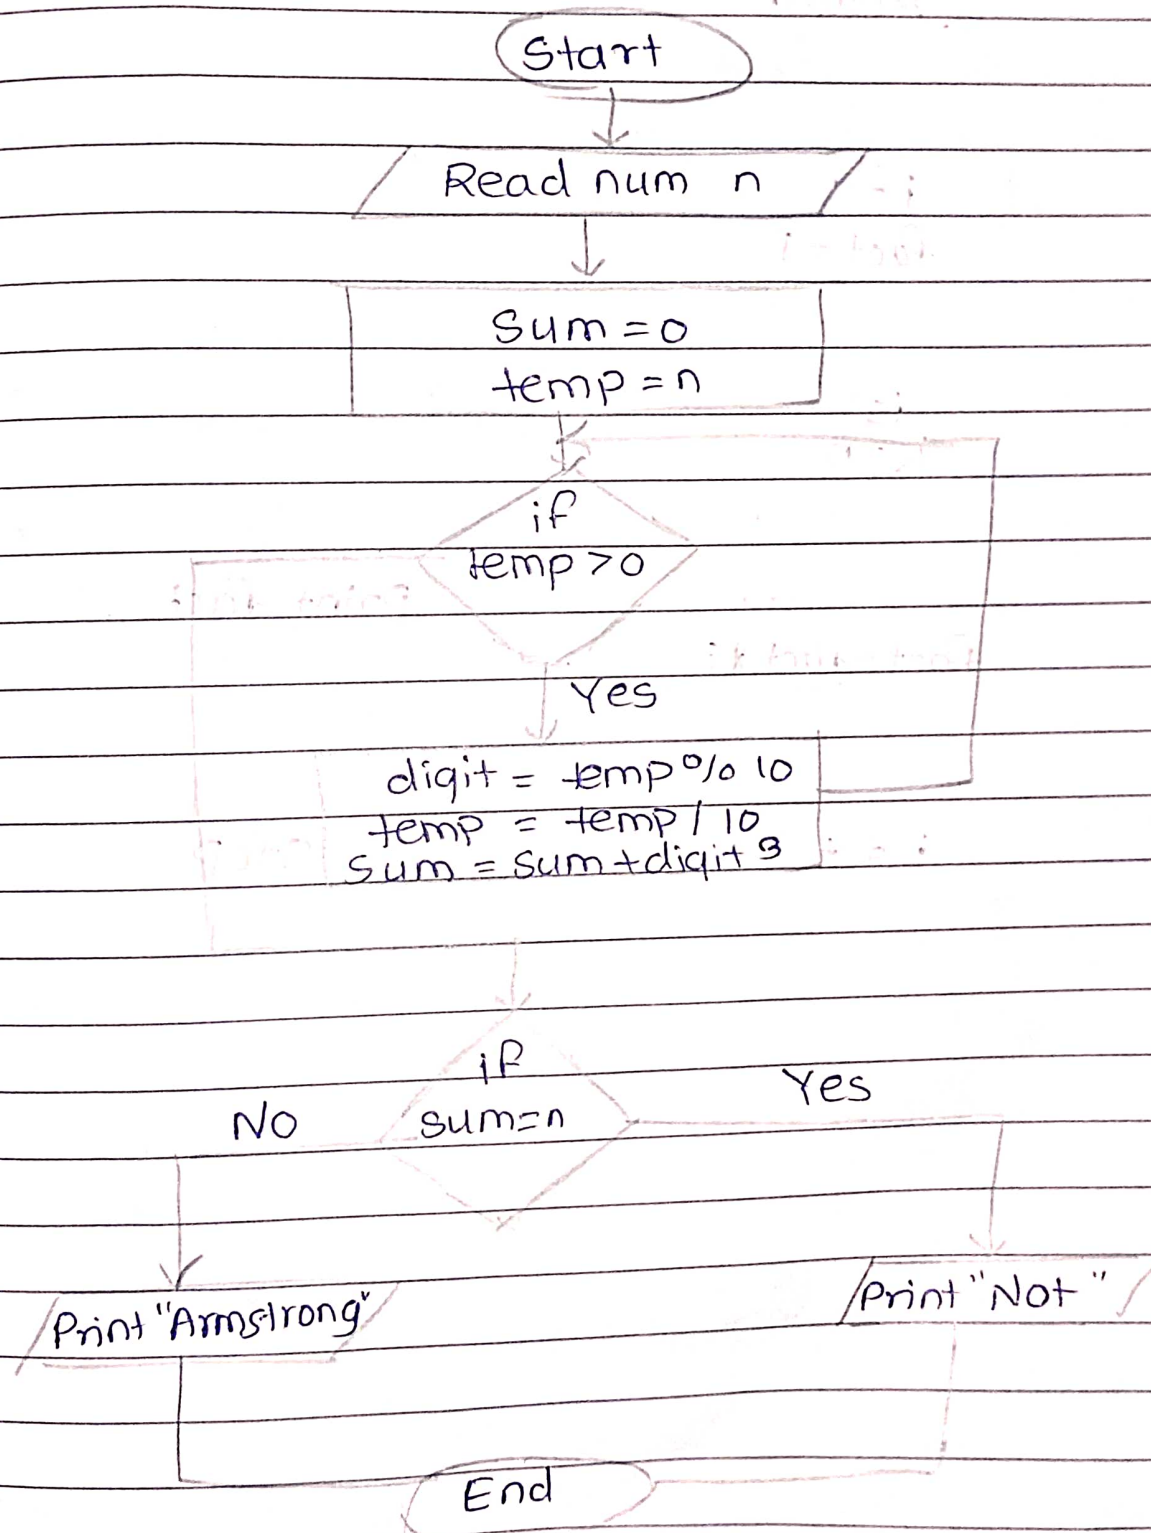 Start
Read num n
Sum = 0
temp = n
if
temp > 0
Yes
digit = temp % 10
temp = temp / 10
Sum = Sum + digit 3
if
sum = n
No
Yes
Print "Armstrong"
Print "Not"
End